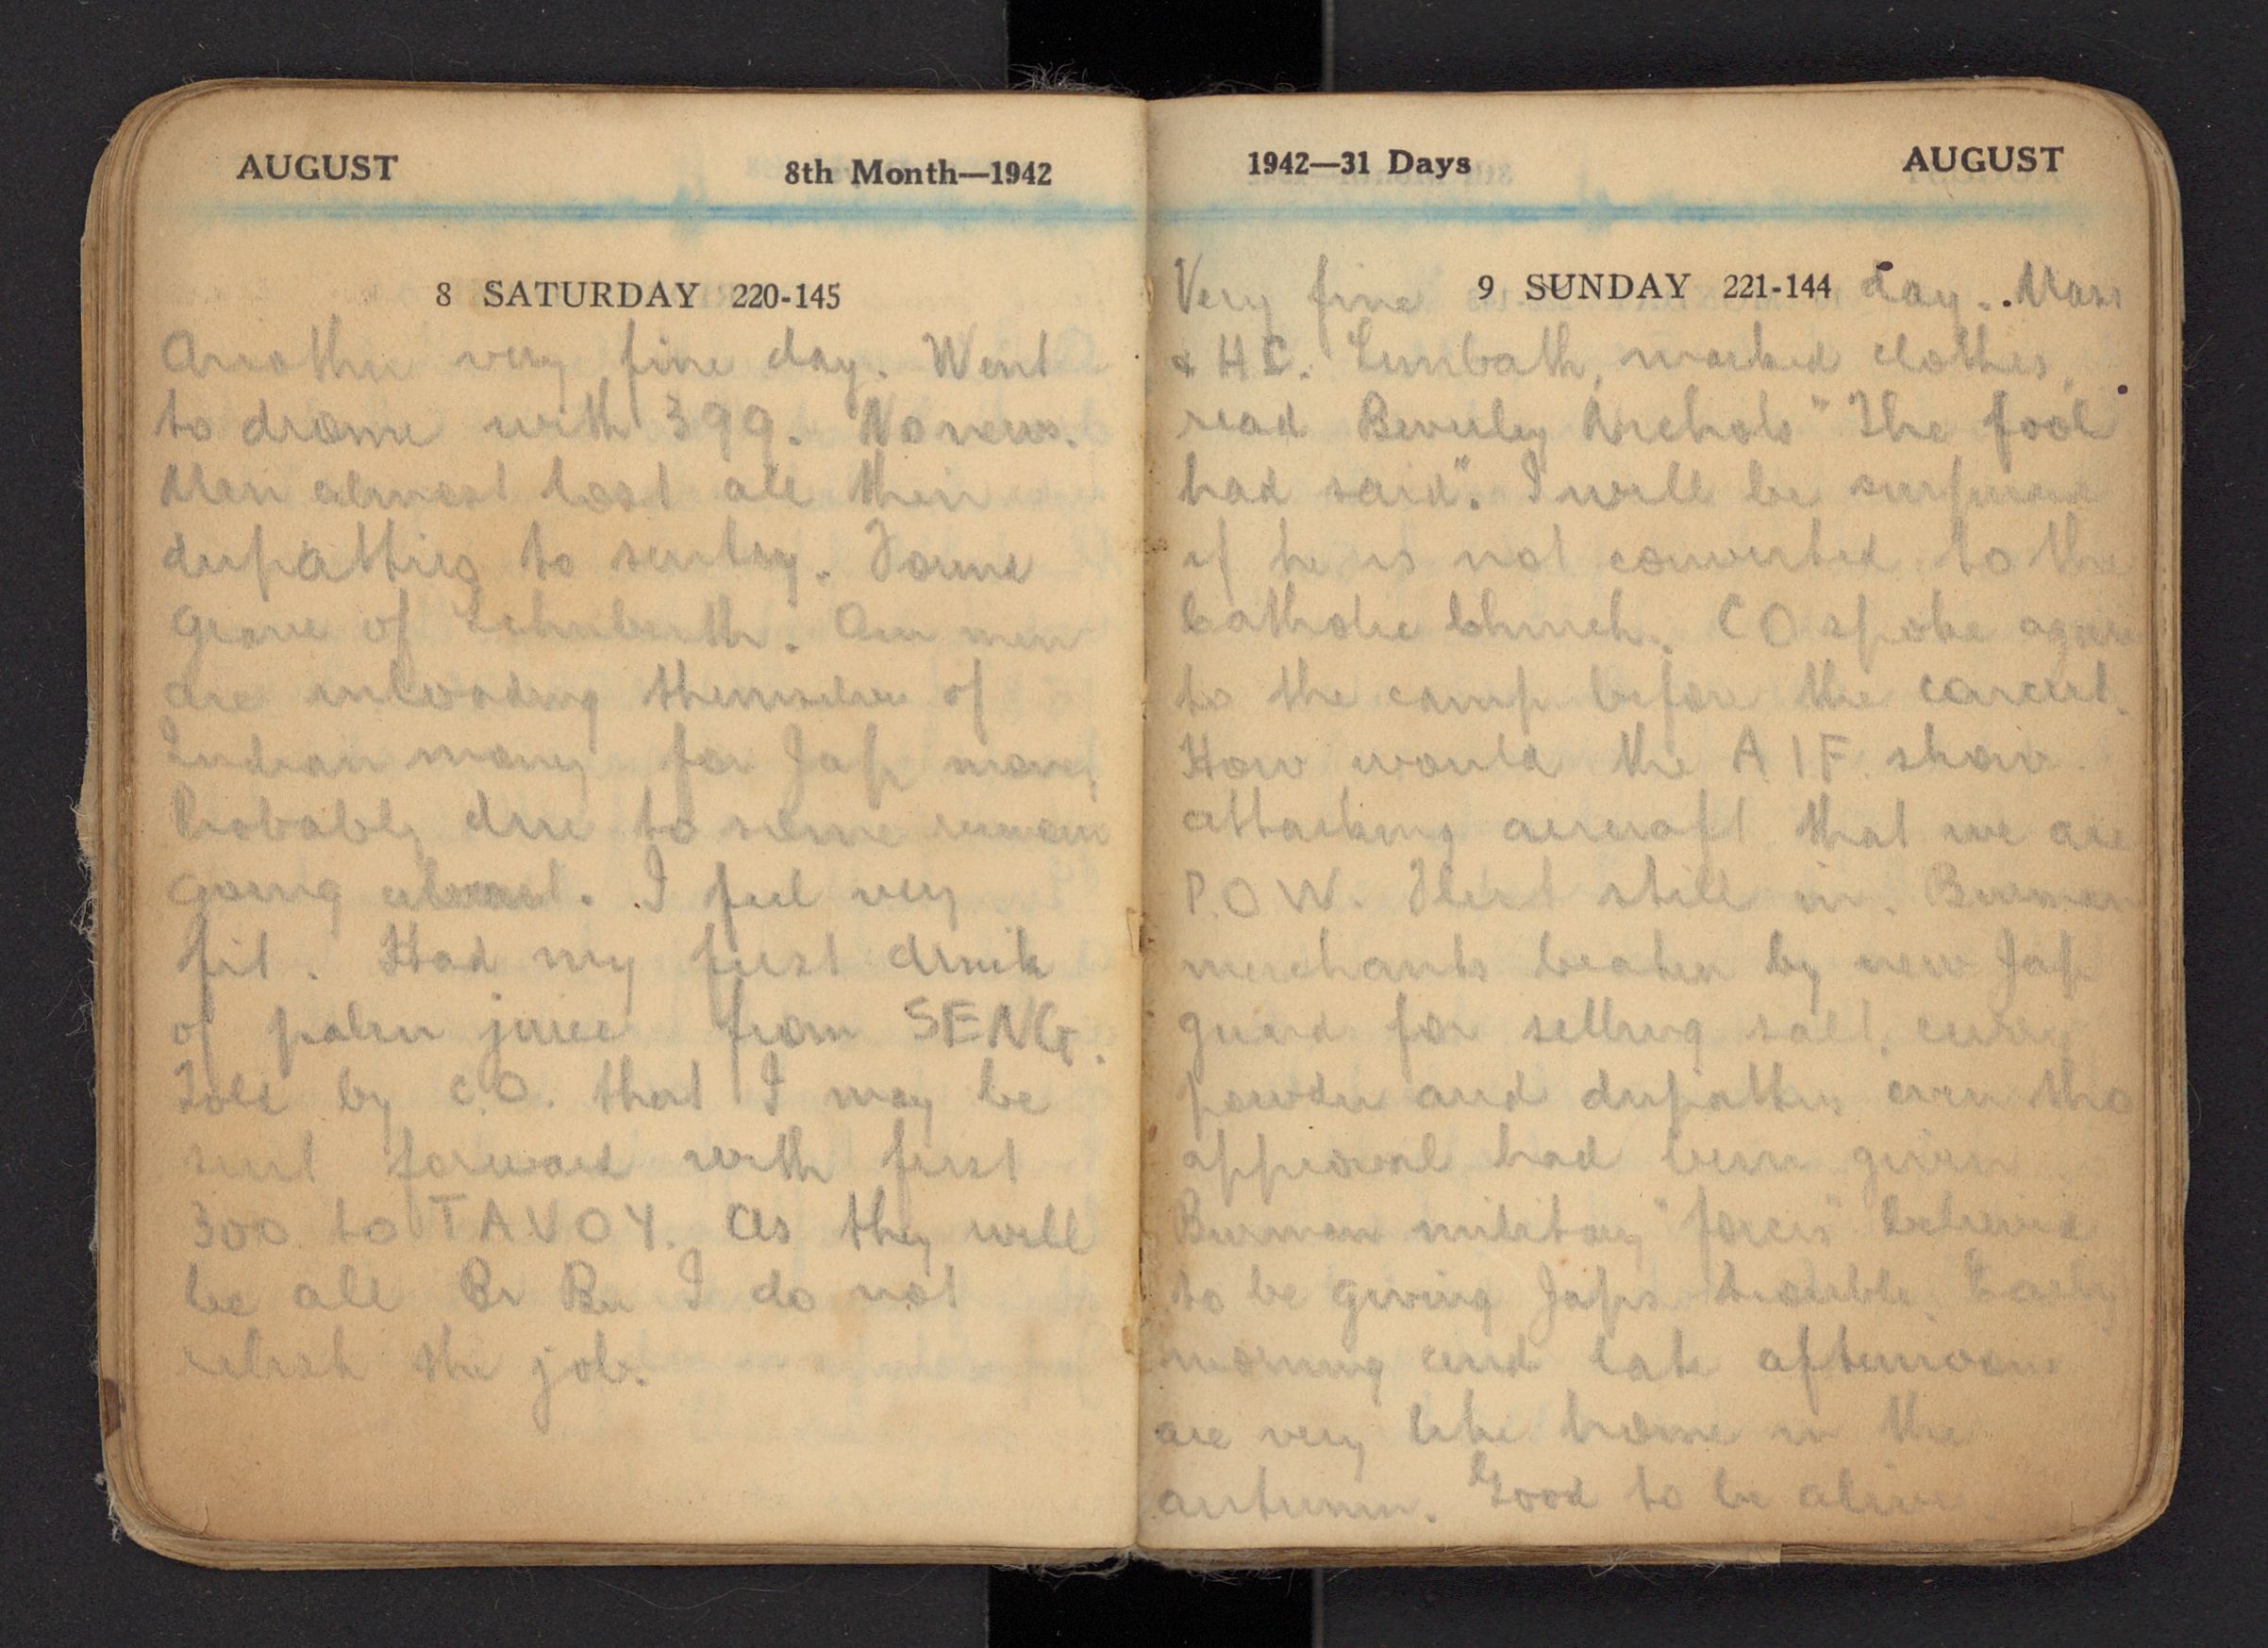 AUGUST 8th Month—1942
8 SATURDAY 220-145
Another very fine day. Went
to drome with 399. No news.
Men almost lost all their
to sentry. Found
grave of . Our men
are unloading themselves of
Indian money for Jap money
Probably due to some rumour
going about. I feel very
fit. Had my first drink
of palm juice from SENG.
Told by C.O. that I may be
sent forward with first
300 to TAVOY. As they will
be all Br Bn I do not
relish the job.
1942—31 Days AUGUST
9 SUNDAY 221-144
Very fine day. Mass
& HC. Sunbath, washed clothes,
read Beverley Nichols "The fool
had said". I will be surprised
if he is not converted to the
Catholic Church. CO spoke again
to the camp before the concert.
How would the AIF show
attacking aircraft that we are
P.O.W. still in. Burman
merchants beaten by new Jap
guard for selling salt, curry
powder and even tho
approval had been given
Burman military "forces" believed
to be giving Japs trouble. Early
morning and late afternoon
are very like home in the
autumn. Good to be alive